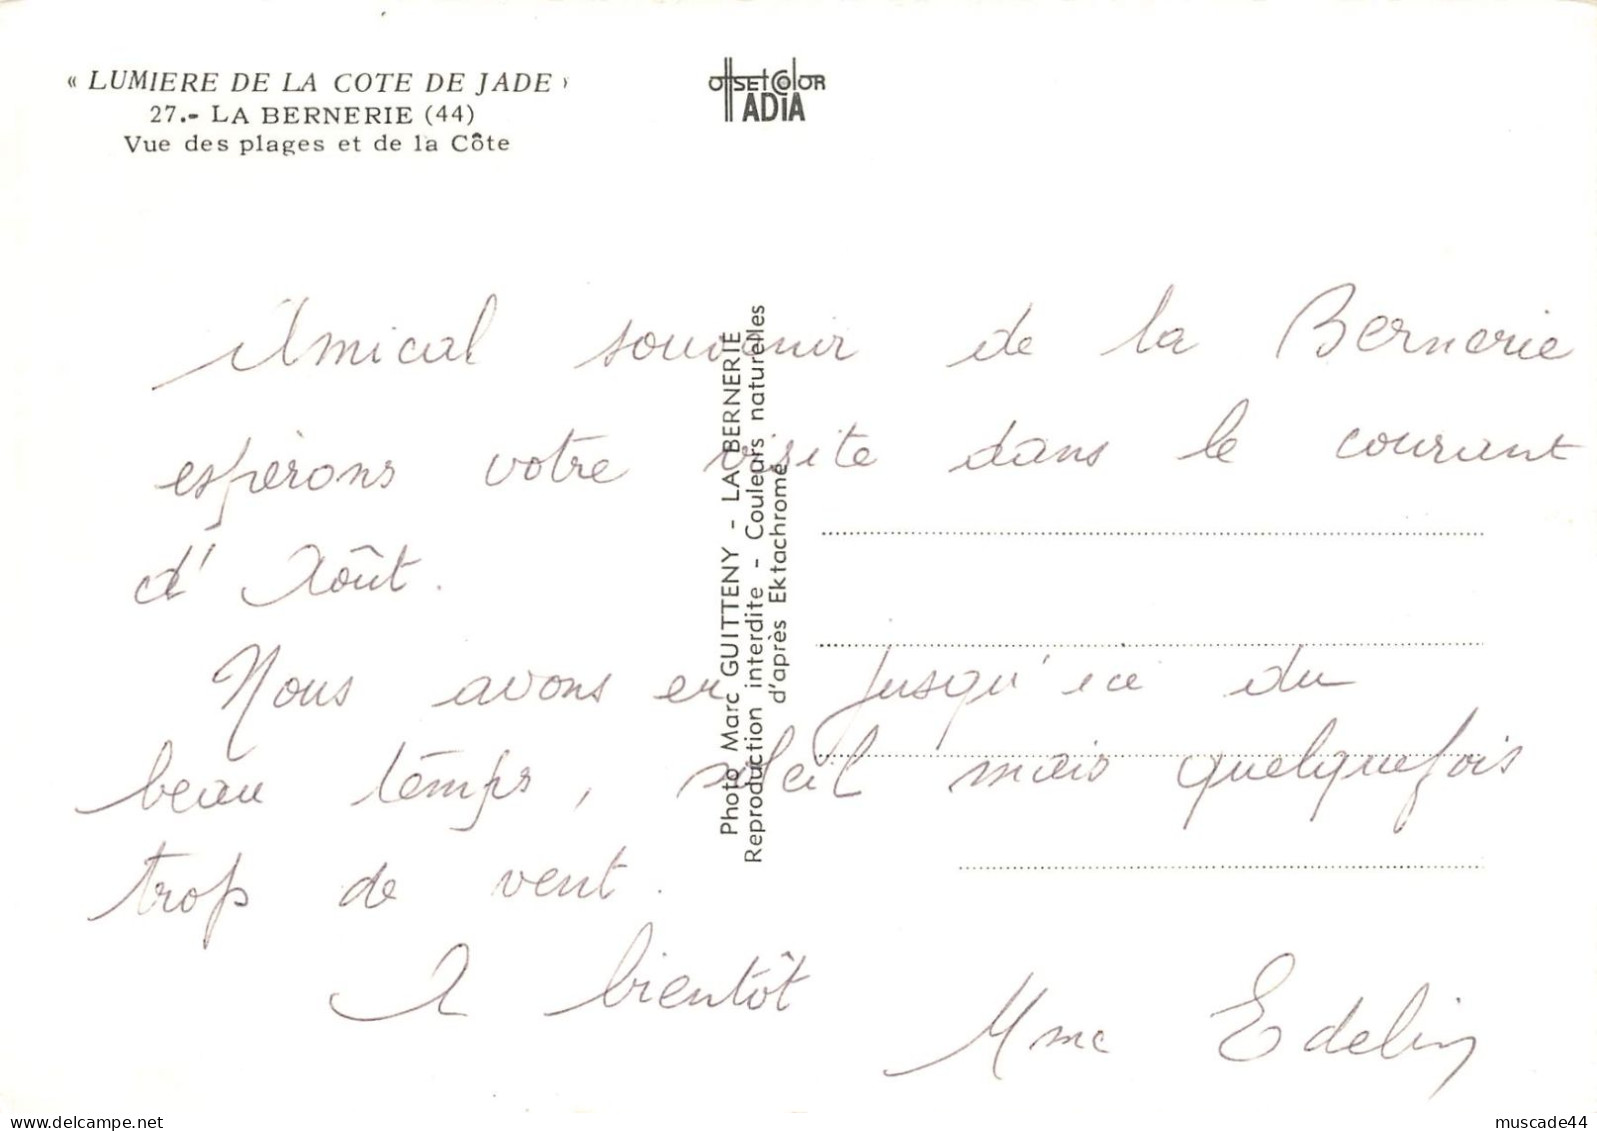 « LUMIERE DE LA COTE DE JADE ›
27.- LA BERNERIE (44)
Vue des plages et de la Côte
OffSEtColOR
ADiA
Amical souvenir de la Bernerie
espèrons votre visite dans le courant
d' Août.
Nous avons eu jusqu'ici du
beau temps, soleil mais quelquefois
trop de vent.
A bientôt
Mme Edelin
Photo Marc GUITTENY - LA BERNERIE
Reproduction interdite - Couleurs naturelles
d'après Ektachrome
muscade44